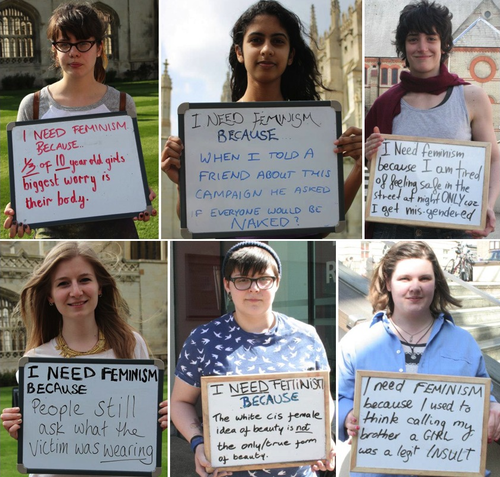 I NEED FEMINISM
BECAUSE.
1/3 of 10 year old girls
biggest worry is
their body.
I NEED FEMINISM
BECAUSE
WHEN I TOLD A
FRIEND ABOUT THIS
CAMPAIGN HE ASKED
IF EVERYONE WOULD BE
NAKED?
I Need feminism
because I am tired
of feeling safe in the
street at night ONLY coz
I get mis-gendered
I NEED FEMINISM
BECAUSE
People still
ask what the
victim was wearing
I NEED FEMINISM
BECAUSE
The white cis female
idea of beauty is not
the only/true form
of beauty.
I need FEMINISM
because I used to
think calling my
brother a GIRL
was a legit INSULT